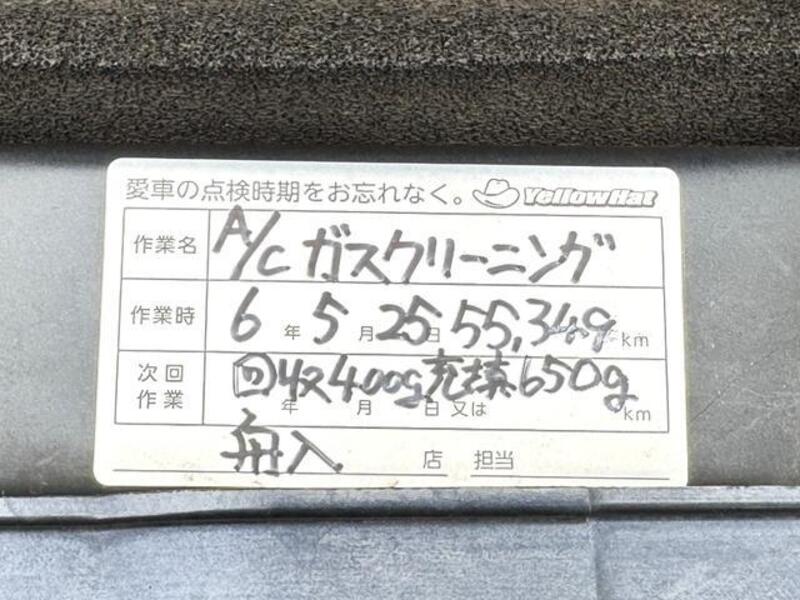 愛車の点検時期をお忘れなく。 YellowHat
作業名 A/C ガスクリーニング
作業時 6年 5月 25日 55,349km
次回作業 回収400g充填650g 年 月 日又は km
舟入 店 担当